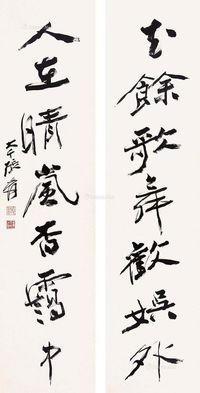 花餘歌舞歡娛外
人在晴嵐杳靄中
大千張爰